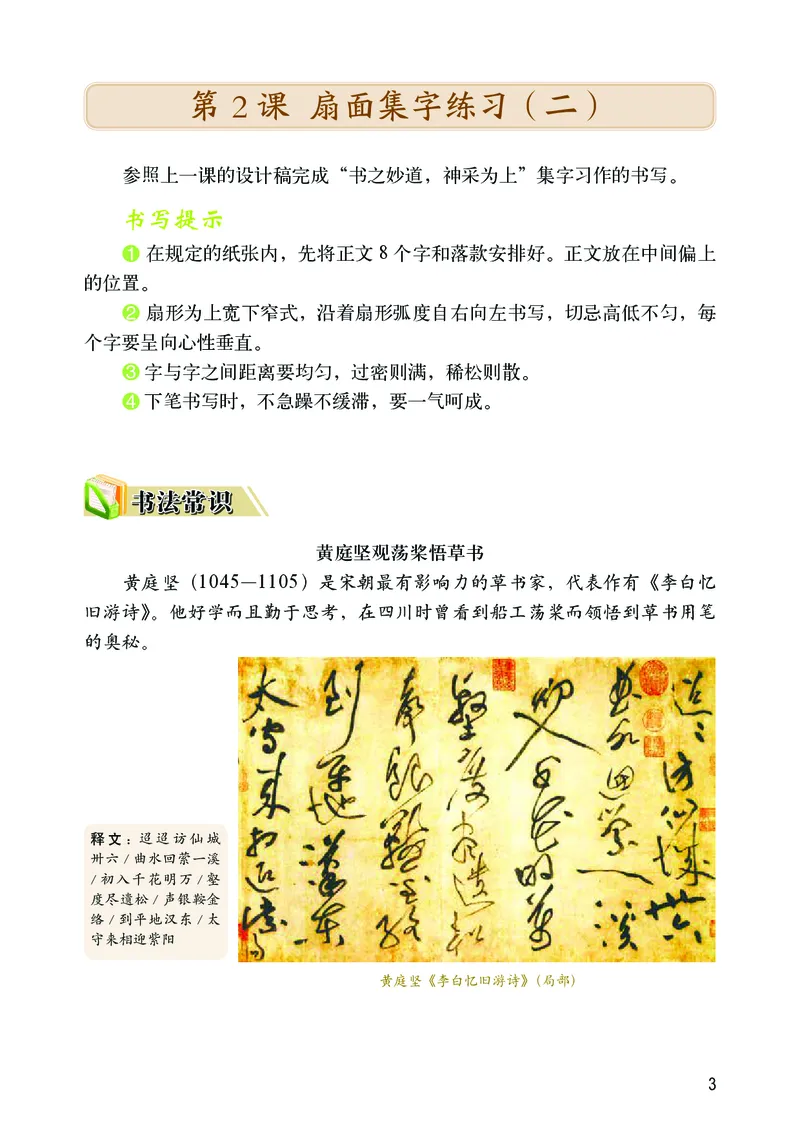 第 2 课 扇面集字练习（二）
参照上一课的设计稿完成“书之妙道，神采为上”集字习作的书写。
书写提示
❶ 在规定的纸张内，先将正文 8 个字和落款安排好。正文放在中间偏上
的位置。
❷ 扇形为上宽下窄式，沿着扇形弧度自右向左书写，切忌高低不匀，每
个字要呈向心性垂直。
❸ 字与字之间距离要均匀，过密则满，稀松则散。
❹ 下笔书写时，不急躁不缓滞，要一气呵成。
书法常识
黄庭坚观荡桨悟草书
黄庭坚（1045—1105）是宋朝最有影响力的草书家，代表作有《李白忆
旧游诗》。他好学而且勤于思考，在四川时曾看到船工荡桨而领悟到草书用笔
的奥秘。
迢迢访仙城卅六
曲水回萦一溪
初入千花明万
壑度尽遗松
声银鞍金络
到平地汉东
太守来相迎紫阳
释文：迢迢访仙城
卅六 / 曲水回萦一溪
/ 初入千花明万 / 壑
度尽遗松 / 声银鞍金
络 / 到平地汉东 / 太
守来相迎紫阳
黄庭坚《李白忆旧游诗》（局部）
3